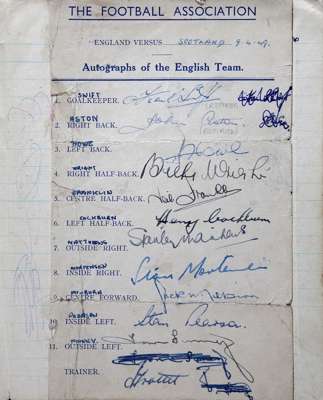 THE FOOTBALL ASSOCIATION
ENGLAND VERSUS SCOTLAND 9.4.49.
Autographs of the English Team.
SWIFT
1. GOALKEEPER.
ASTON
2. RIGHT BACK. John Aston
HOWE
3. LEFT BACK. J Howe
WRIGHT
4. RIGHT HALF-BACK. Billy Wright
FRANKLIN
5. CENTRE HALF-BACK. Neil Franklin
COCKBURN
6. LEFT HALF-BACK. Henry Cockburn
MATTHEWS
7. OUTSIDE RIGHT. Stanley Matthews
MORTENSEN
8. INSIDE RIGHT. Stan Mortensen
MILBURN
9. CENTRE FORWARD. Jack Milburn
PEARSON
10. INSIDE LEFT. Stan Pearson
FINNEY
11. OUTSIDE LEFT. Tom Finney
TRAINER.